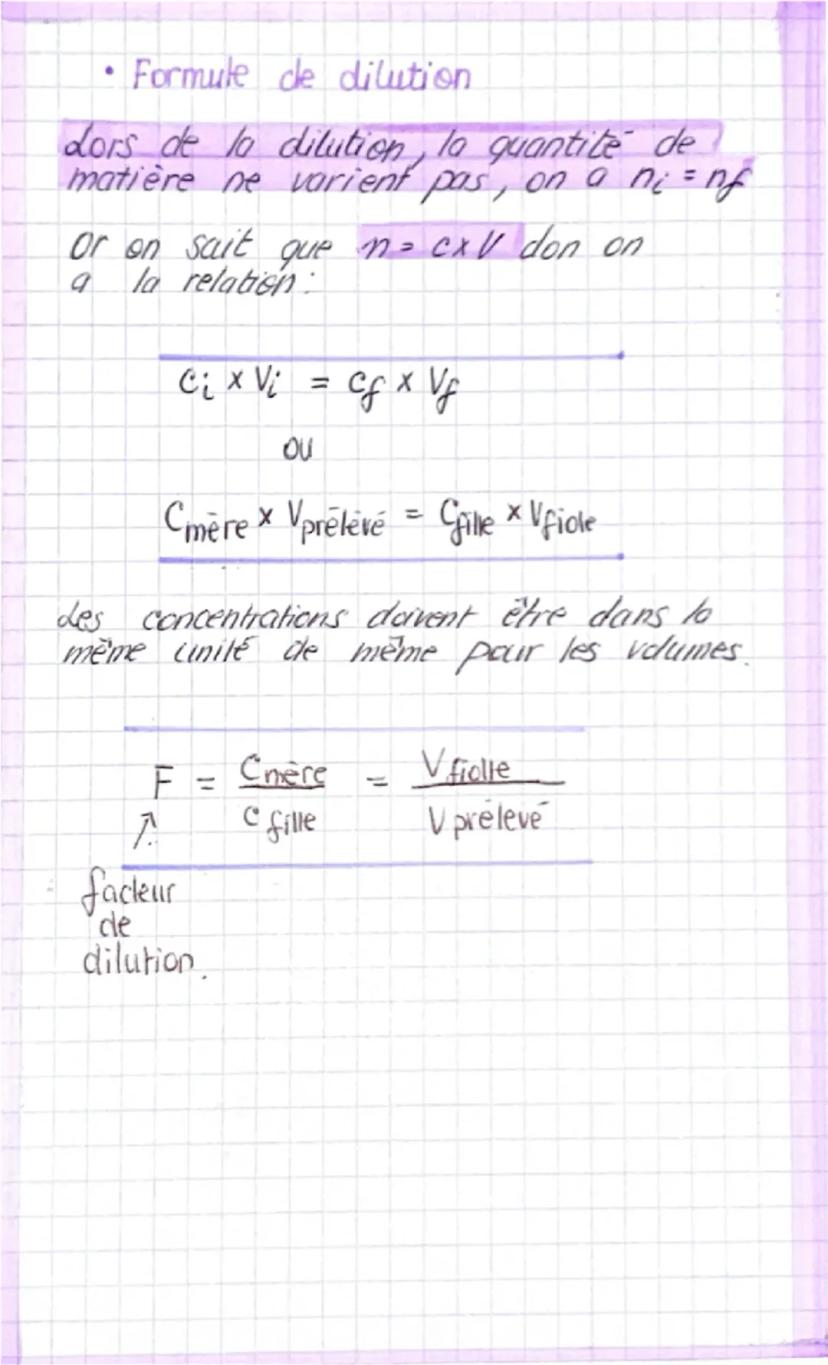 • Formule de dilution
Lors de la dilution, la quantité de
matière ne varient pas, on a ni = nf
Or on sait que n = c x V don on
a la relation :
Ci x Vi = Cf x Vf
ou
Cmère x Vprélévé = Cfille x Vfiole
Les concentrations doivent être dans la
même unité de même pour les volumes.
F = Cmère / C fille = V fiolle / V prélevé
facteur
de
dilution.